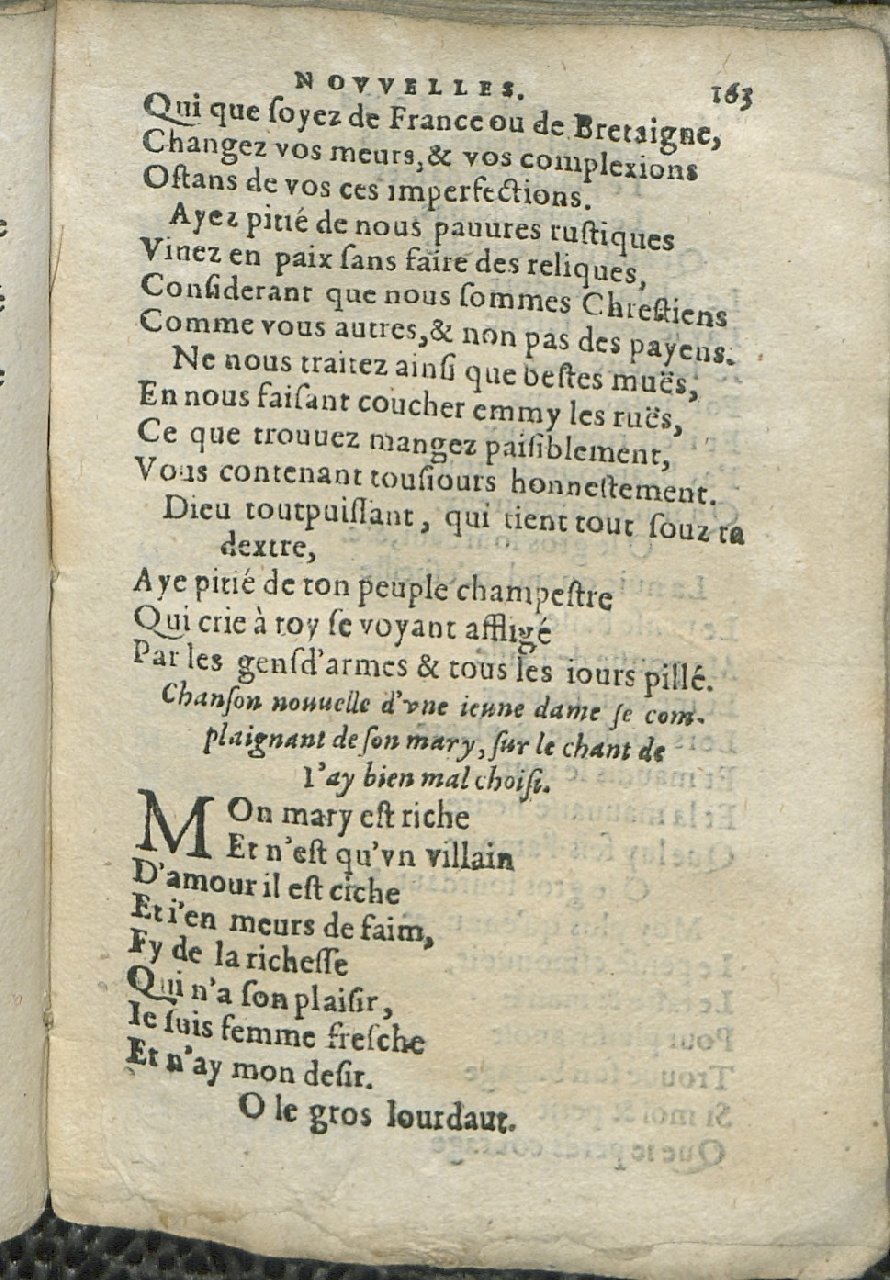 NOVVELLES. 163
Qui que ſoyez de France ou de Bretaigne,
Changez vos meurs, & vos complexions
Oſtans de vos ces imperfections.
Ayez pitié de nous pauures ruſtiques
Viuez en paix ſans faire des reliques,
Conſiderant que nous ſommes Chreſtiens
Comme vous autres, & non pas des payens.
Ne nous traitez ainſi que beſtes muës,
En nous faiſant coucher emmy les ruës,
Ce que trouuez mangez paiſiblement,
Vous contenant touſiours honneſtement.
Dieu toutpuiſſant, qui tient tout ſouz ta
dextre,
Aye pitié de ton peuple champeſtre
Qui crie à toy ſe voyant affligé
Par les genſd'armes & tous les iours pillé.
Chanſon nouuelle d'vne ieune dame ſe com-
plaignant de ſon mary, ſur le chant de
I'ay bien mal choiſi.
MOn mary eſt riche
Et n'eſt qu'vn villain
D'amour il eſt ciche
Et i'en meurs de faim,
Fy de la richeſſe
Qui n'a ſon plaiſir,
Ie ſuis femme freſche
Et n'ay mon deſir.
O le gros lourdaut.